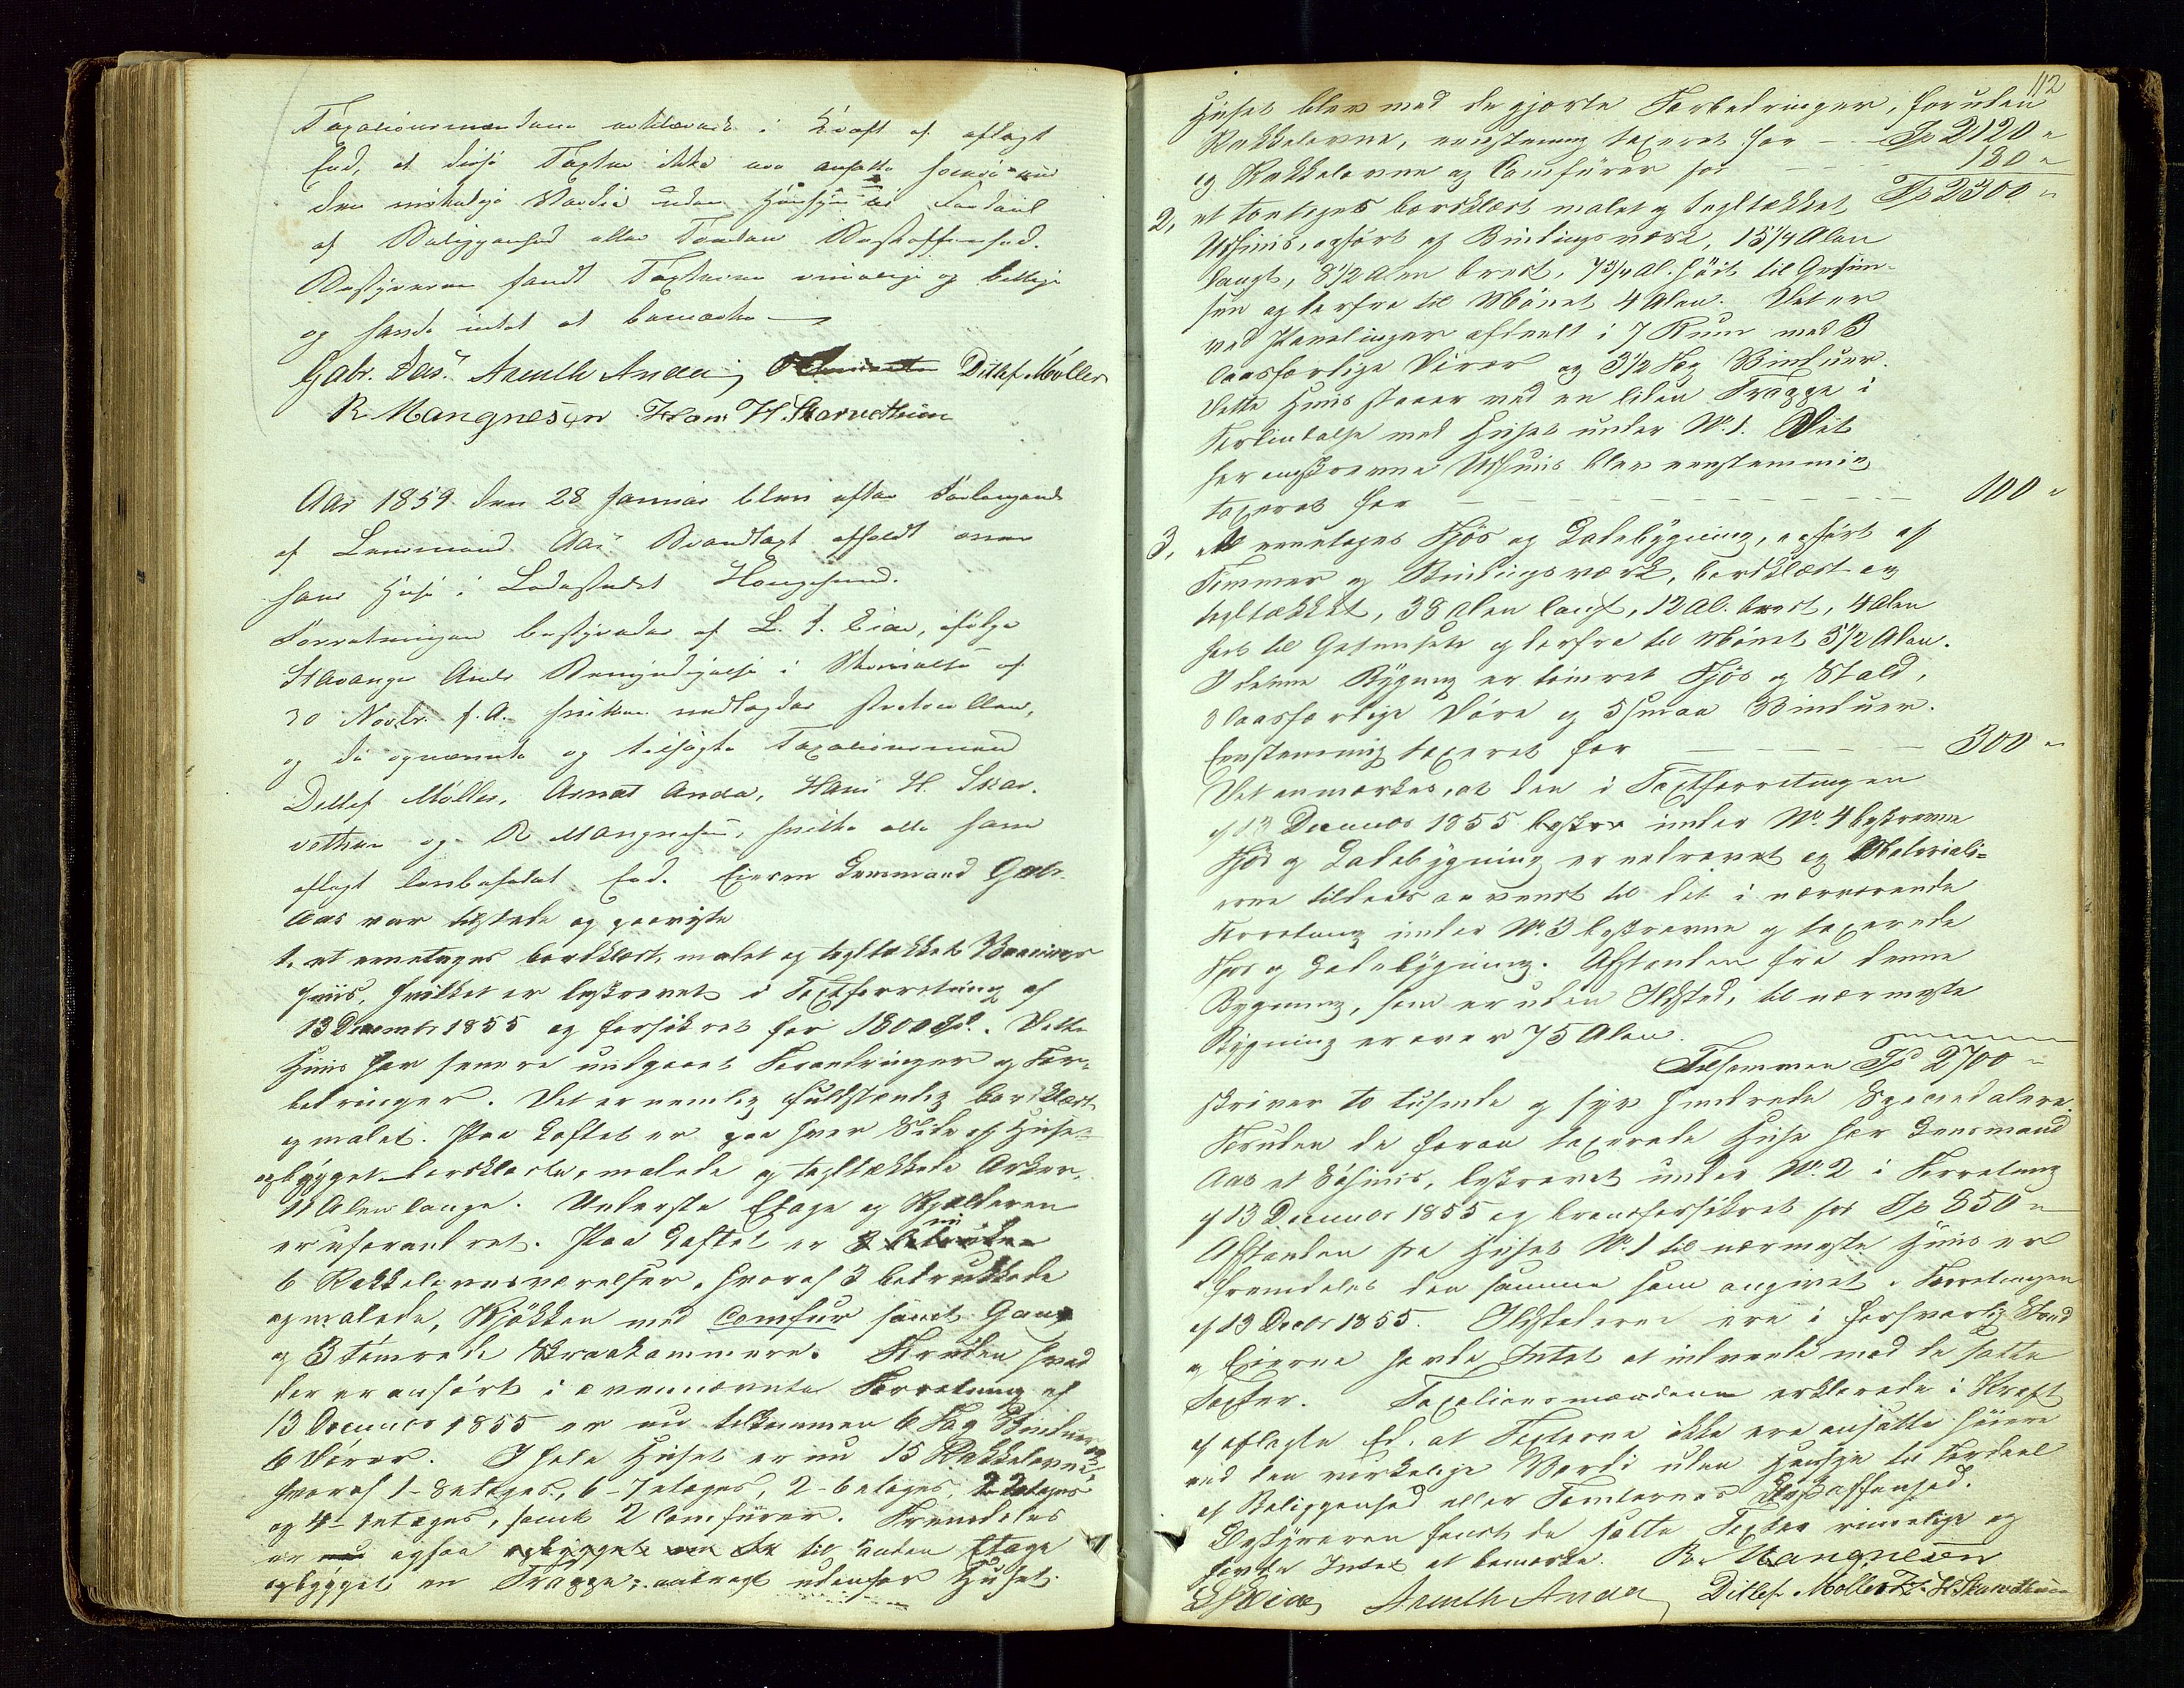 Taxationsmændene erklærede i Kraft af aflagt
Eed, at disse Taxter ikke ere ansatte høiere end
den virkelige Værdie uden Hensyn til Fordeel
af Beliggenhed eller Tomtens Beskaffenhed.
Bestyreren fandt Taxterne rimelige og billige
og havde intet at bemærke
Gabr. Aas. Arnuth Anda, Ditlef Møller
R Mangnesen Hans H. Skarvethun
Aar 1859 den 28 Januar blev efter Forlangende
af Lensmand Aas Brandtaxt afholdt over
hans Huse i Ladestedet Haugesund.
Forretningen bestyredes af L. S. Eide, ifølge
Stavanger Amts Bemyndigelse i Skrivelse af
30 Novbr. f. A. hvilken nedlagdes Protocollen,
og de opnævnte og tilsagte Taxationsmænd
Ditlef Møller, Arnut Anda, Hans H. Skar-
vethun og R Mangnesen, hvilke alle have
aflagt lovbefalet Eed. Eieren Lensmand Gabr.
Aas var tilstede og paaviste
1, et eenetages bordklædt, malet og tegltækket Vaanings
huus, hvilket er beskrevet i Taxtforretning af
13 Decembr 1855 og forsikret for 1800 Spd. Dette
Huus har senere undgaaet Forandringer og For-
bedringer. Det er nemlig fuldstændig bordklædt
og malet. Paa Loftet er paa hver Side af Huset
opbygget bordklædte, malede og tegltækkede Arker,
11 Alen lange. Underste Etage og Kjælderen
er uforandret. Paa Loftet er nu
6 Kakkelovnsværelser, hvoraf 3 betrukkede
og malede, Kjøkken med Comfur samt Gang
og 3 tømrede Skraakammere. Foruden hvad
der er anført i ovennævnte Forretning af
13 December 1855 er nu tilkommen 6 Fag Vinduer og
6 Dører. I hele Huset er nu 15 Kakkelovne,
hvoraf 1- 8 etages, 6 - 7 etages, 2 - 6 etages, 2 2etages
og 4- 1etages, samt 2 Comfurer. Fremdeles
er ogsaa til anden Etage
opbygget en Trappe, anbragt udenfor Huset.
112
Huset blev med de gjorte Forbedringer, foruden
Kakkelovne, eenstemmig taxeret for - - Sp 2120 "
og Kakkelovne og Comfurer for - - - 180 "
Sp 2300 "
2, et toetages bordklædt malet og tegltækket
Udhuus, opført af Bindingsværk, 15 1/4 Alen
langt, 8 1/2 Alen bredt, 7 3/4 Al. høit til Gesim-
sen og derfra til Mønet 4 Alen. Det er
ved Panelinger afdeelt i 7 Rum med 3
laasfærdige Dører og 3 1/2 Fag Vinduer.
Dette Huus staaer ved en liden Trappe i
Forbindelse med Huset under No 1. Det
her omskrevne Udhuus blev eenstemmig
taxeret for - - - - - - - - - - - 100 "
3, et eenetages Fjøs og Ladebygning, opført af
Tømmer og Bindingsværk, bordklædt og
tegltækket, 38 Alen langt, 12 Al. bredt, 4 Alen
høit til Gesimsen og derfra til Mønet 5 1/2 Alen.
I denne Bygning er tømret Fjøs og Stald,
3 laasfærdige Døre og 5 smaa Vinduer.
Eenstemmig taxeret for - - - - - - 300 "
Det anmærkes, at den i Taxtforretningen
af 13 December 1855 under No 4 beskrevne
Fjøs og Ladebygning er nedrevet og Materiali-
erne tildeels anvendt til det i nærværende
Forretning under No. 3 beskrevne og taxerede
Fjøs og Ladebygning. Afstanden fra denne
Bygning, som er uden Ildsted, til nærmeste
Bygning er over 75 Alen.
Tilsammen Sp 2700 "
skriver to tusinde og syv hundrede Speciedalere.
Foruden de foran taxerede Huse har Lensmand
Aas et Søhuus, beskrevet under No. 2 i Forretning
af 13 December 1855 og brandforsikret for Sp 850 "
Afstanden fra Huset No. 1 til nærmeste Huus er
fremdeles den samme som angivet i Forretningen
af 13 Decbr 1855. Ildstederne ere i forsvarlig Stand
og Eierne havde Intet at indvende mod de satte
Taxter. Taxationsmændene erklærede i Kraft
af aflagte Ed, at Taxterne ikke ere ansatte høiere
end den virkelige Værdi uden Hensyn til Fordeel
af Beliggenhed eller Tomternes Beskaffenhed.
Bestyreren fandt de satte Taxter rimelige og
havde Intet at bemærke. R. Mangnesen
LSEide, Arnuth Anda, Ditlef Møller H. H. Skarvethun